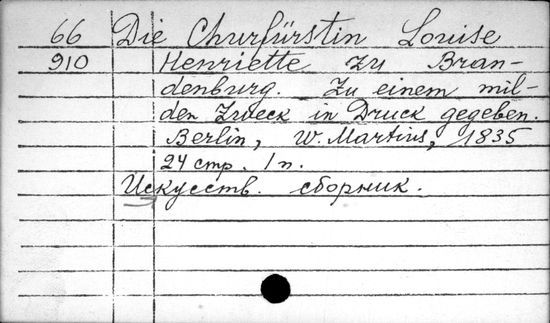 66 Die Churfürstin Louise
910 Henriette zu Bran-
denburg. Zu einem mil-
den Zweck in Druck gegeben.
Berlin, W. Martius, 1835
24 стр. 1 п.
Искусств. сборник.